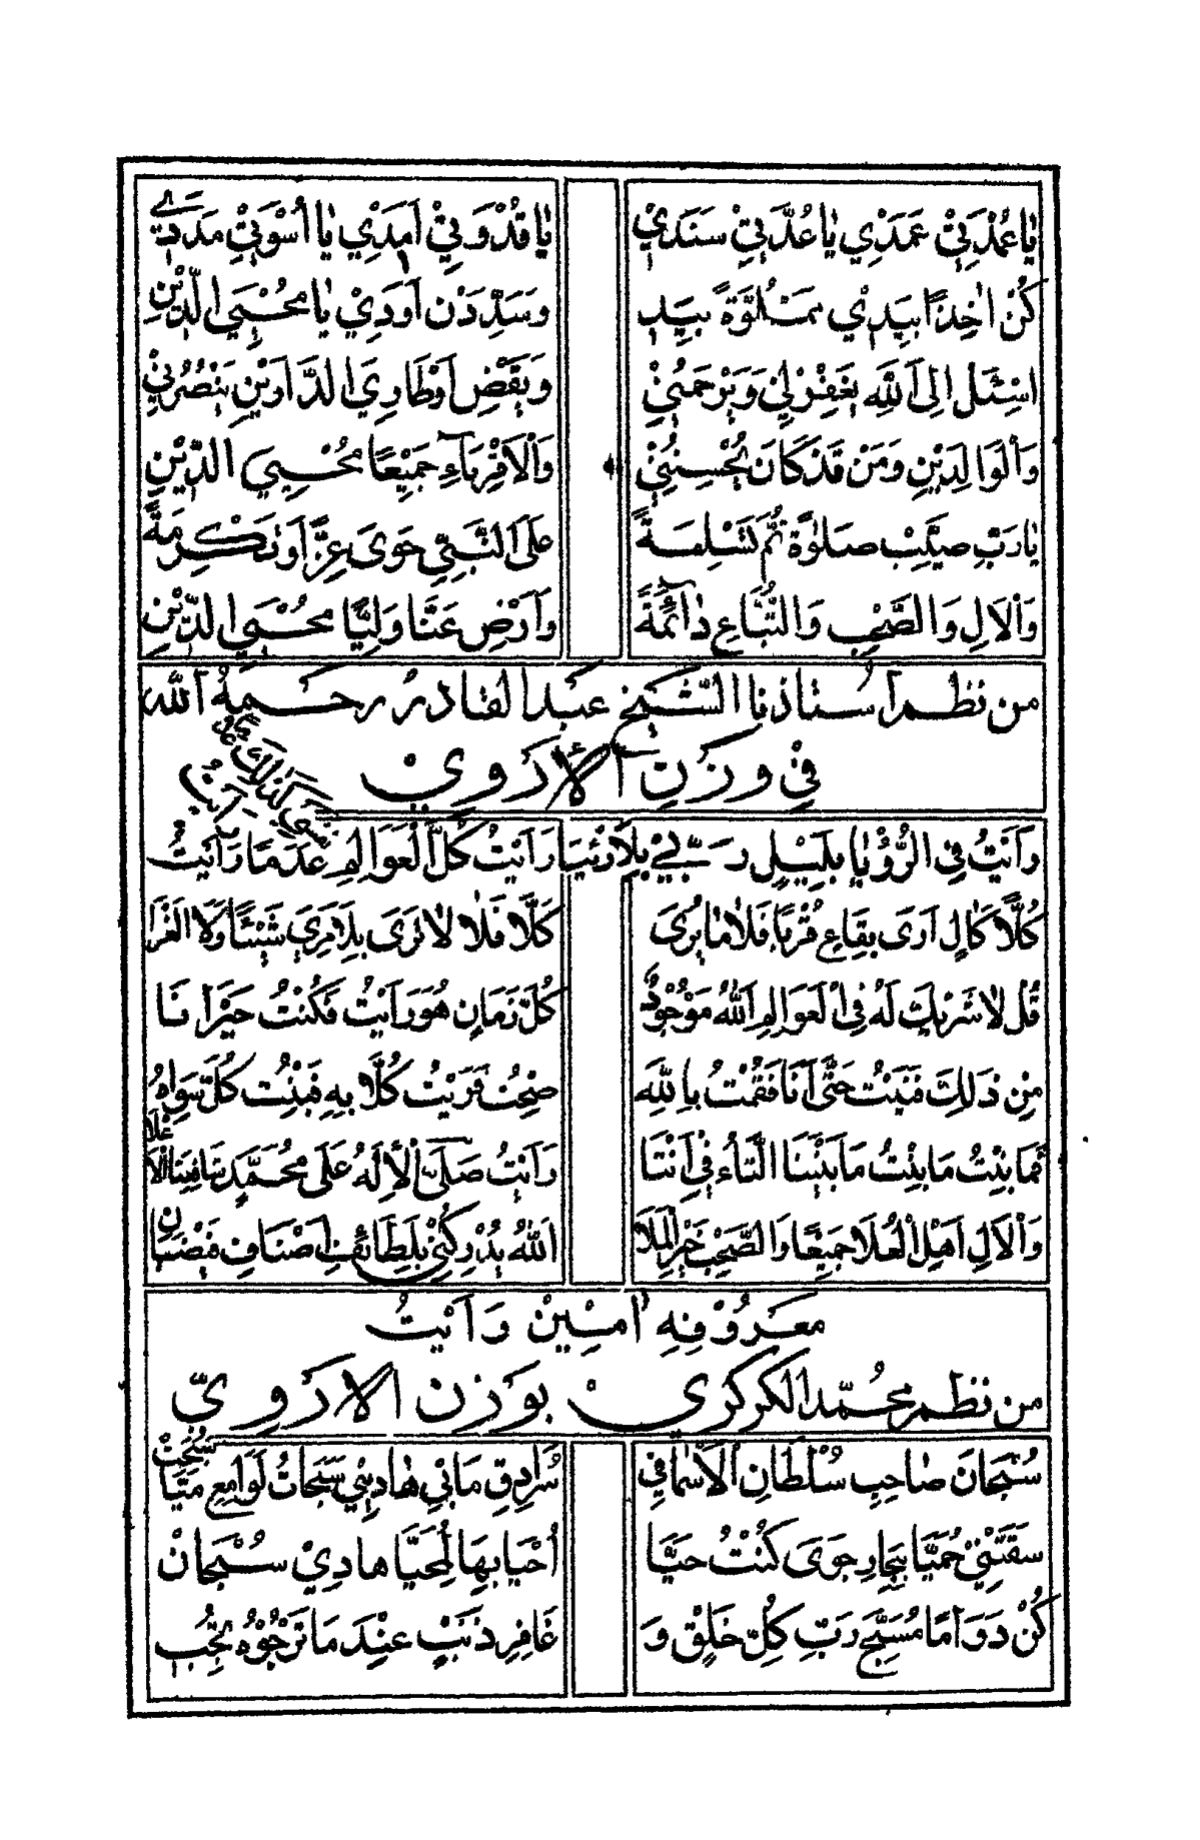 يَا عُمْدَتِيْ عَمَدِي يَا عُدَّتِيْ سَنَدِيْ يَا قُدْوَتِيْ اَمَدِي يَا اُسْوَتِيْ مَدَدِيْ
كُنْ اٰخِذًا بِيَدِيْ مَتْلُوَّةً بِيَدِ وَسَدِّدَنْ اَوَدِيْ يَا مُحْيِيَ الدِّيْنِ
اسْئَلْ اِلَى اللهِ يَغْفِرْلِيْ وَيَرْحَمُنِيْ وَيَقْضِ اَوْطَارِيَ الدَّارَيْنِ يَنْصُرُنِيْ
وَالْوَالِدَيْنِ وَمَنْ قَدْ كَانَ يُحْسِنُنِيْ وَالْاَقْرِبَاءِ جَمِيْعًا مُحْيِيَ الدِّيْنِ
يَا رَبِّ صَيِّبْ صَلٰوةً ثُمَّ تَسْلِمَةً عَلَى النَّبِيِّ حَوَى عِزًّا وَتَكْرِمَةً
وَالْاٰلِ وَالصَّحْبِ وَالتُّبَّاعِ دَآئِمَةً وَارْضَ عَنَّا وَلِيًّا مُحْيِيَ الدِّيْنِ
من نظم اُستاذنا الشَّيخ عبد القادر رحمةُ الله
فِيْ وَزْنِ الأَرَوِيْ
رَاَيْتُ فِي الرُّؤْيَا بِلَيْلٍ رَبِّيْ بِلَا رَئْيًا رَاَيْتُ كُلَّ الْعَوَالِمِ عَدَمًا رَاَيْتُ
كُلًّا كَاٰلٍ اَرَى بِقَاعٍ قُرْبًا فَلَا مَا يُرَى كَلَّا فَلَا لَا تَرَى بِلَا مِرَيْ شَيْئًا وَلَا الْغَرَا
قُلْ لَا شَرِيْكَ لَهُ فِي الْعَوَالِمِ اَللهُ مَوْجُوْدٌ كُلَّ زَمَانٍ هُوَ رَاَيْتُ فَكُنْتُ حَيْرَانَا
مِنْ ذَلِكَ فَنَيْتُ حَتَّى اَنَا فَقُمْتُ بِاللهِ صِحْتُ فَرَيْتُ كُلًّا بِهِ فَبِنْتُ كُلَّ سِوَاهُ
فَمَا بِنْتُ مَا بِنْتُ مَا بَيْنَنَا التَّاءُ فِيْ اَنْتَا وَاَنْتُ صَلَّى الْاِلَهُ عَلَى مُحَمَّدٍ شَافِعِنَا
وَالْاٰلِ اَهْلِ الْعُلَا جَمِيْعًا وَالصَّحْبِ خَيْرِ الْمَلَا اَللهُ يُدْرِكُنِيْ بِلَطَائِفِ اَصْنَافِ فَيْضَانِ
مَعْرُوْفِهِ اٰمِيْن وَاَنْتُ
من نظم محمّد الكركري بوَزن الاَرَوِيّ
سُبْحَانَ صَاحِبِ سُلْطَانِ الْاَسْمَا فِيْ سُرَادِقِ مَانِيْ هَادِيْنِيْ سُبُحَاتُ لَوَامِعِ مَيًّا سُبُحَتْ
سَقَتْنِيْ حُمَيَّا بِبِحَارِ جَوَى كُنْتُ حَيًّا اُحْيَا بِهَا لِمُحَيَّا هَادِيْ سُبْحَانْ
كُنْ دَوَامًا مُسَبِّحَ رَبِّ كُلِّ خَلْقٍ وَ غَافِرِ ذَنْبٍ عِنْدَ مَا تَرْجُوْهُ يُجِبُ